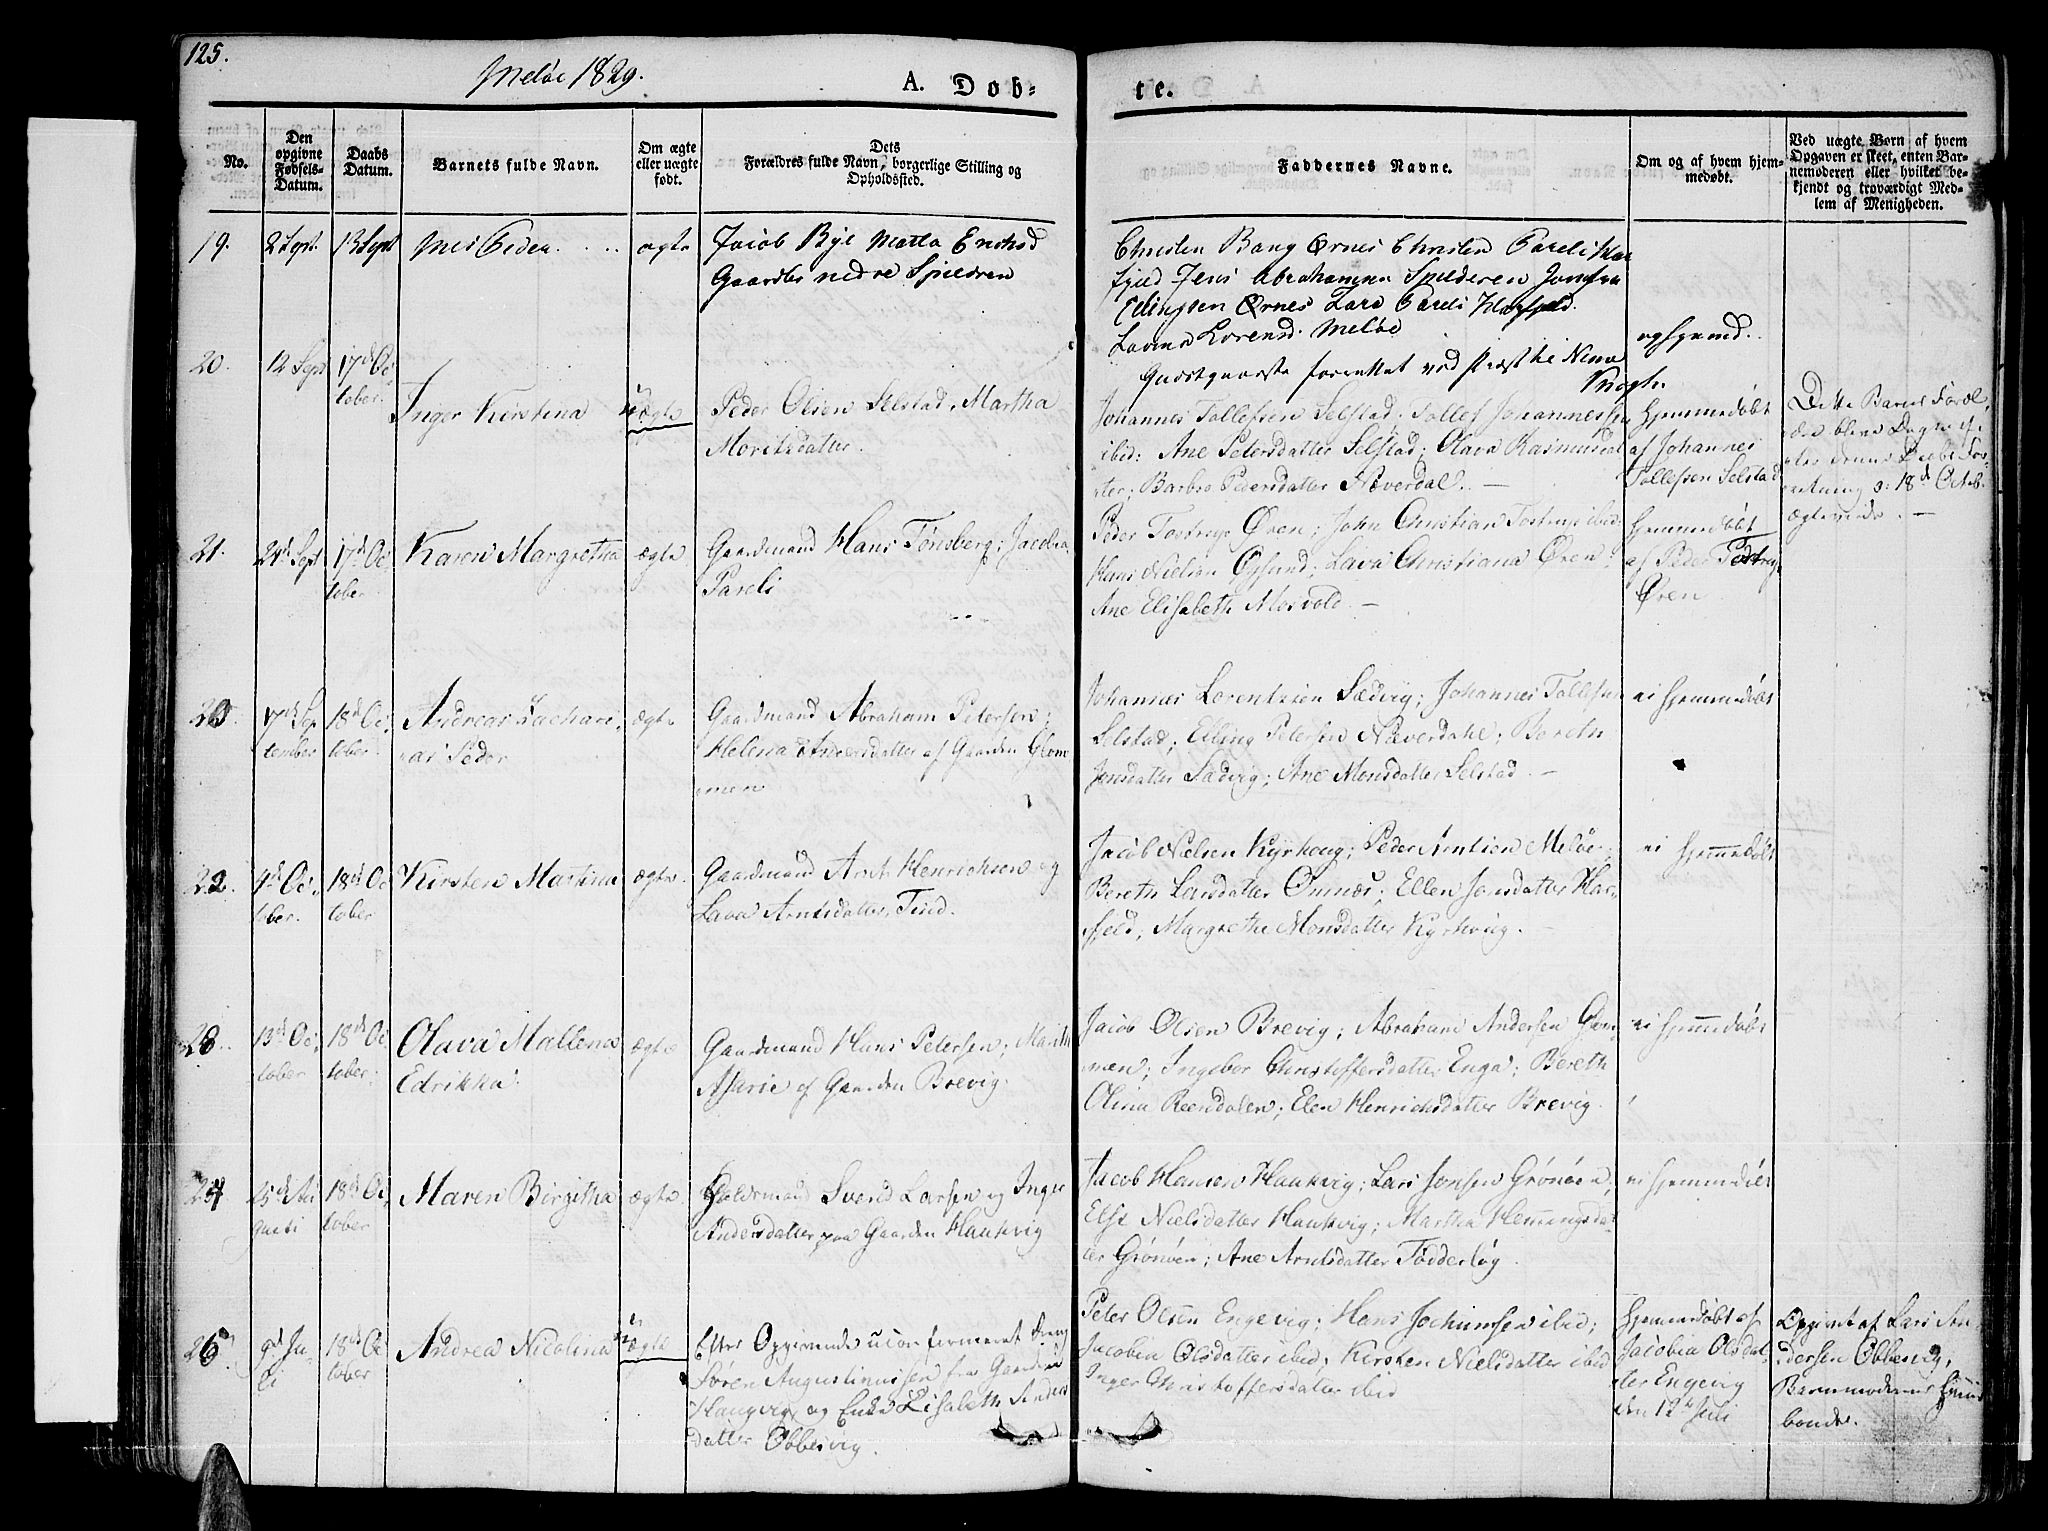 125.
Meløe 1829.
A. Døb-
te.
No.
Den
opgivne
Fødsels-
Datum.
Daabs
Datum.
Barnets fulde Navn.
Om ægte
eller uægte
født.
Dets
Forældres fulde Navn, borgerlige Stilling og
Opholdssted.
Faddernes Navne.
Om og af hvem hjem-
medøbt.
Ved uægte Børn af hvem
Opgaven er skeet, enten Bar-
nemoderen eller hvilket be-
kjendt og troværdigt Med-
lem af Menigheden.
19.
2 Sept.
13 Sept
Peder
ægte
Jacob Bye Matta
Gaardbr nedre Spildren
Christen Bang Ørnes Christen Pareli
Jens Abrahamsen Spilderen
Ellingsen Ørnes Lars Pareli
Lorensd. Meløe
20.
12 Sept
17de Oc
tober.
Inger Kirstina
uægte
Peder Olsen Selstad, Martha
Moritsdatter.
Johannes Tollefsen Selstad; Tollef Johannessen
ibid: Ane Petersdatter Selstad; Olava Rasmusdat
ter; Barbro Pedersdatter Næverdal. —
Hjemmedøbt
af Johannes
Tollefsen Selstad
Dette Barns Foræl
18de Octob.
ægteviede. —
21.
24de Sept
17de Oc
tober
Karen Margretha
ægte
Gaardmand Hans Tønsberg; Jacobia
Pareli
Peder Tostrup Øren; John Christian Tostrup ibid;
Hans Nielsen Øysund; Lava Christiana Øren;
Ane Elisabeth Mosvold. —
Hjemmedøbt
af Peder Tostrup
Øren
17de Sep
tember
18de Oc
tober
Andreas Zachari
as Peder
ægte
Gaardmand Abraham Petersen;
Helena Andersdatter af Gaarden Glom
men
Johannes Lorentzen Sædvig; Johannes Tollefsen
Selstad; Elling Petersen Næverdahl; Bereth
Jensdatter Sædvig; Ane Monsdatter Selstad. —
ei hjemmedøbt
22.
4de Oc
tober.
18de Oc
tober
Kirsten Martina
ægte
Gaardmand Arnt Henrichsen og
Lava Arntsdatter, Tind.
Jacob Nielsen Kyrhoug; Peder Arntsen Meløe;
Bereth Larsdatter Ønnæs; Ellen Jonsdatter Har-
fjeld; Margrethe Monsdatter Kyrkvig. —
ei hjemmedøbt
23.
13de Oc
tober
18de Oc
tober.
Olava Mallena
Edrikka
ægte
Gaardmand Hans Petersen; Marith
Marie af Gaarden Brevig.
Jacob Olsen Brevig; Abraham Andersen Glom
men; Ingebor Christoffersdatter Enga; Bereth
Olina Reendalen; Elen Henrichsdatter Brevig.
ei hjemmedøbt
24
25de Au
gusti
18de Oc
tober
Maren Birgitha
ægte
Svend Larsen og Inger
Andersdatter paa Gaarden Haukvig
Jacob Hansen Haukvig; Lars Jonsen Grønøen;
Else Nielsdatter Haukvig; Martha Hemingsdat
ter Grønøen; Ane Arntsdatter Tødderløg
ei hjemmedøbt
26
9de Ju-
li
18de Oc
tober
Andrea Nicolina
uægte
Efter Opgivende uconfirmeret Dreng
Søren Augustinussen fra Gaarden
Haugvig, og Enke Elisabeth Anders
datter Obbesvig.
Peter Olsen Engevig; Hans Jochumsen ibid;
Jacobia Olsdatter ibid; Kirsten Nielsdatter ibid
Inger Christoffersdatter ibid
Hjemmedøbt af
Jacobia Olsdat
ter Engevig
den 12te Juli
Opgivet af Lars An
dersen Obbesvig,
Barnemoderens
bonde.